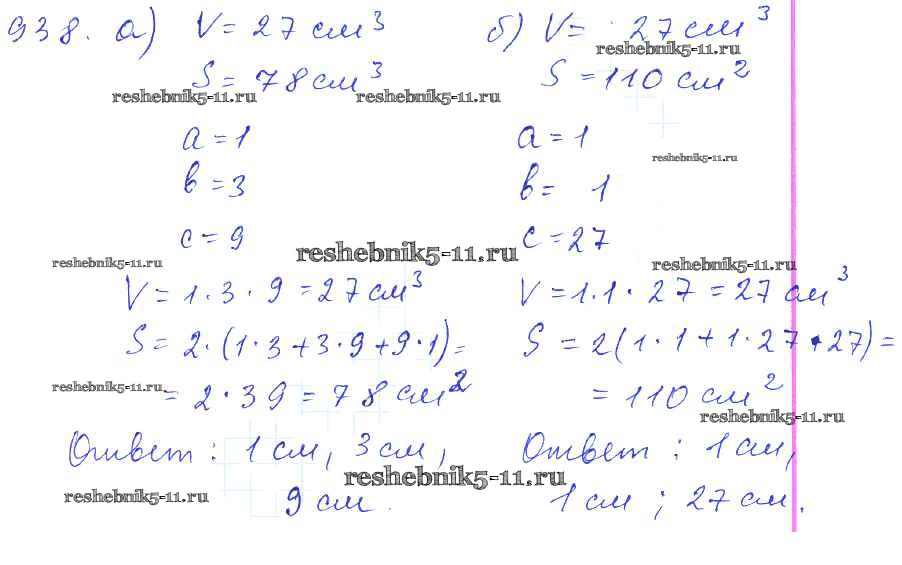 938. а) V = 27 см³
S = 78 см³
a = 1
b = 3
c = 9
V = 1 · 3 · 9 = 27 см³
S = 2 · (1 · 3 + 3 · 9 + 9 · 1) =
= 2 · 39 = 78 см²
Ответ : 1 см, 3 см,
9 см.
б) V = 27 см³
S = 110 см²
a = 1
b = 1
c = 27
V = 1 · 1 · 27 = 27 см³
S = 2 (1 · 1 + 1 · 27 + 27) =
= 110 см²
Ответ : 1 см,
1 см ; 27 см.
reshebnik5-11.ru
reshebnik5-11.ru
reshebnik5-11.ru
reshebnik5-11.ru
reshebnik5-11.ru
reshebnik5-11.ru
reshebnik5-11.ru
reshebnik5-11.ru
reshebnik5-11.ru
reshebnik5-11.ru
reshebnik5-11.ru